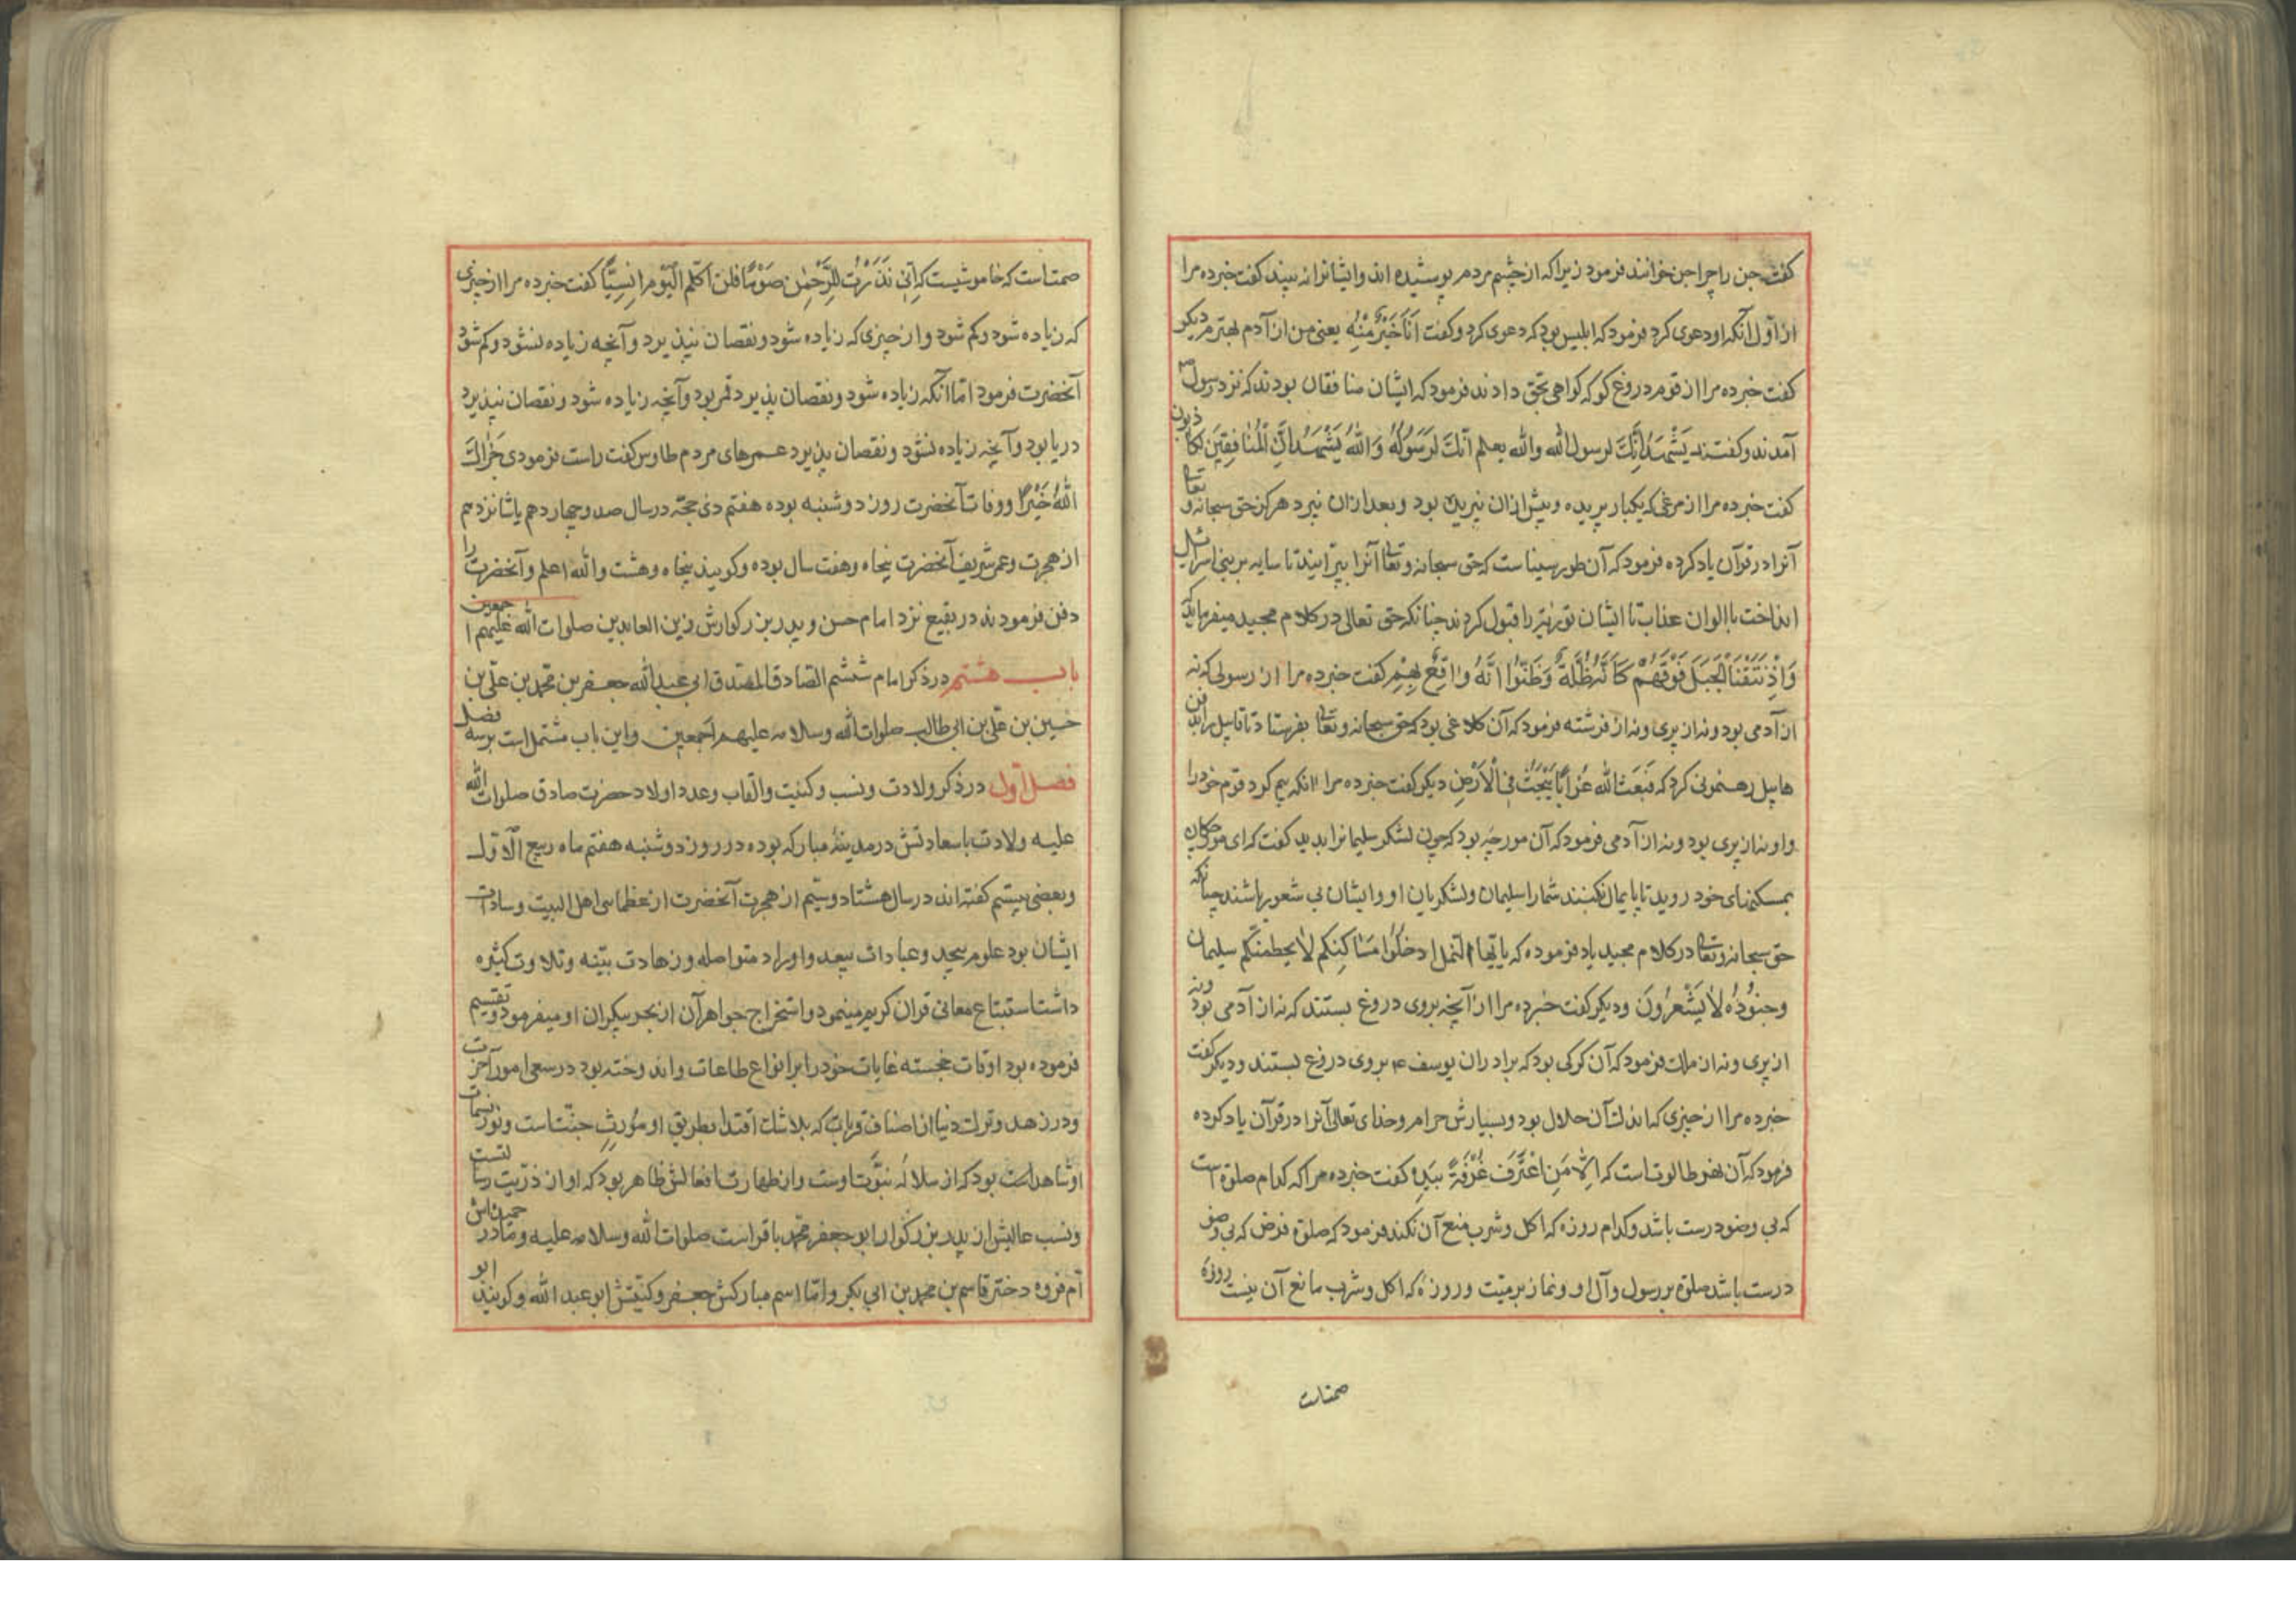 کفت جن را چرا جن خوانند فرمود زیرا که از چشم مردم پوشیده اند و ایشانرا نه بینند کفت خبر ده مرا
از اول آنکه او دعوی کرد فرمود که ابلیس بود که دعوی کرد و کفت اَنَا خَیْرٌ مِنْهُ یعنی من از آدم بهترم دیکر
کفت خبر ده مرا از قوم دروغ کو که کواهی بحق دادند فرمود که ایشان منافقان بودند که نزد رسول ص
آمدند و کفتند یَشْهَدُ اِنَّكَ لرسول الله والله یعلم انّك لَرَسُولُهُ وَاللهُ یَشْهَدُ اِنَّ الْمُنَافِقِینَ لکاذبون
کفت خبر ده مرا از مرغی که یکبار پریده و پیش ازان نپریده بود و بعد ازان نپرد هرکز حق سبحانه و تعالی
آنرا در قرآن یاد کرده فرمود که آن طور سیناست که حق سبحانه و تعالی آنرا بپرانید تا سایه بر بنی اسرائیل
انداخت با الوان عذاب تا ایشان توریة را قبول کردند چنانکه حق تعالی در کلام مجید میفرماید که
وَاِذْ نَتَقْنَا الْجَبَلَ فَوْقَهُمْ کَاَنَّهُ ظُلَّةٌ وَظَنُّوا اَنَّهُ وَاقِعٌ بِهِمْ کفت خبر ده مرا از رسولی که نه
از آدمی بود و نه از پری و نه از فرشته فرمود که آن کلاغی بود که حق سبحانه و تعالی بفرستاد تا قابیل را بدفن
هابیل رهنمونی کرد که فَبَعَثَ الله غُرَابًا یَبْحَثُ فِی الْاَرْضِ دیکر کفت خبر ده مرا از انکه بیم کرد قوم خود را
و او نه از پری بود و نه از آدمی فرمود که آن مورچه بود که چون لشکر سلیمانرا بدید کفت که ای مورچکان
بمسکنهای خود روید تا پایمال نکنند شما را سلیمان و لشکریان او و ایشان بی شعور باشند چنانکه
حق سبحانه و تعالی در کلام مجید یاد فرموده که یا ایّها النّمل ادخُلُوا مَسَاکِنِکم لا یحطمنّکم سلیمان
وجنودُه لا یَشْعُرُونَ و دیکر کفت خبر ده مرا از آنچه بروی دروغ بستند که نه از آدمی بود و نه
از پری و نه از ملك فرمود که آن کرکی بود که برادران یوسف ع بروی دروغ بستند و دیکر کفت
خبر ده مرا از چیزی که اندك آن حلال بود و بسیارش حرام و خدای تعالی آنرا در قرآن یاد کرده
فرمود که آن نهر طالوت است که اِلَّا مَنِ اغْتَرَفَ غُرْفَةً بِیَدِهِ کفت خبر ده مرا که کدام صلوة است
که بی وضو درست باشد و کدام روزه که اکل و شرب منع آن نکند فرمود که صلوة فرض که بی وضو
درست باشد صلوة بر رسول و آل او و نماز بر میّت و روزهٔ که اکل و شرب مانع آن نیست روزهٔ
صمتاست
صمتاست که خاموشیست که اِنِّی نَذَرْتُ لِلرَّحْمٰنِ صَوْمًا فلن اکلّم الْیَوْمَ اِنْسِیًّا کفت خبر ده مرا از چیزی
که زیاده شود و کم شود و از چیزی که زیاده شود و نقصان نپذیرد و آنچه زیاده نشود و کم شود
آنحضرت فرمود امّا آنکه زیاده شود و نقصان پذیرد قمر بود و آنچه زیاده شود و نقصان نپذیرد
دریا بود و آنچه زیاده نشود و نقصان پذیرد عمرهای مردم طاوس کفت راست فرمودی جَزَاكَ
اللهُ خَیْرًا و وفات آنحضرت روز دوشنبه بوده هفتم ذی حجّه در سال صد و چهاردهم یا شانزدهم
از هجرت و عمر شریف آنحضرت پنجاه و هفت سال بوده و کویند پنجاه و هشت والله اعلم و آنحضرت را
دفن فرمودند در بقیع نزد امام حسن و پدر بزرکوارش زین العابدین صلوات الله علیهم اجمعین
باب هشتم در ذکر امام ششم الصادق المصدق ابی عبدالله جعفر بن محمد بن علی بن
حسین بن علی بن ابی طالب صلوات الله وسلامه علیهم اجمعین و این باب مشتمل است بر سه فصل
فصل اول در ذکر ولادت و نسب و کنیت و القاب و عدد اولاد حضرت صادق صلوات الله
علیه ولادت با سعادتش در مدینهٔ مبارکه بوده در روز دوشنبه هفتم ماه ربیع الاول
و بعضی بیستم کفته اند در سال هشتاد و سیّم از هجرت آنحضرت از عظمای اهل البیت و سادات
ایشان بود علوم بیحد و عبادات بیعد و اوراد متواصله و زهادت بیّنه و تلاوت کثیره
داشت استتباع معانی قران کریم مینمود و استخراج جواهر آن از بحر بیکران او میفرمود و تقسیم
فرموده بود اوقات خجسته غایات خود را بر انواع طاعات و اندوخته بود در سعی امور آخرت
و در زهد و ترك دنیا از اصناف قربات که بلا شك اقتدا بطریق او مُورث جنّت است و نور نسمات
او شاهد است بود که از سلالهٔ نبوّت اوست و از طهارت افعالش ظاهر بود که او از ذرّیت رسالتست
و نسب عالیش از پدر بزرکوار ابو جعفر محمّد باقر است صلوات الله وسلامه علیه و مادر
اُم فروه دختر قاسم بن محمد بن ابی بکر و امّا اسم مبارکش جعفر و کنیتش ابو عبد الله و کویند ابو